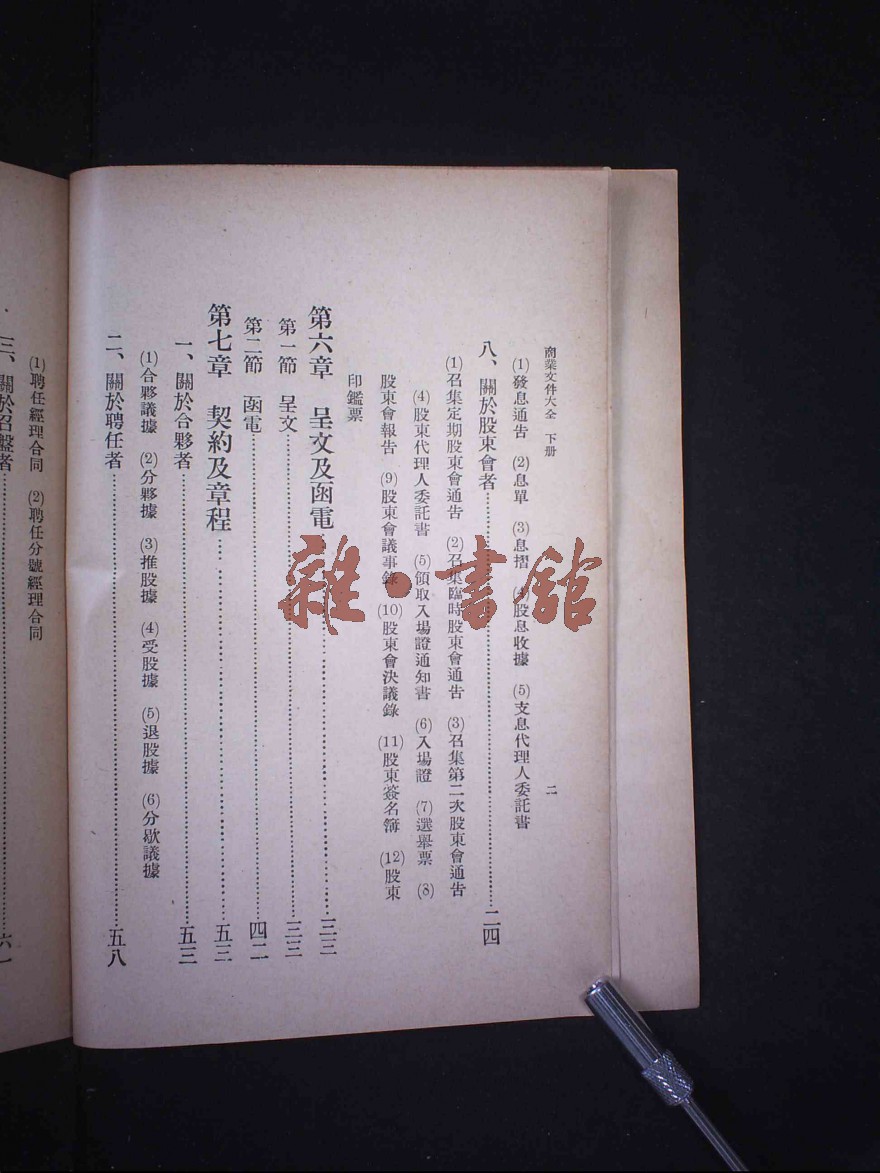 商業文件大全　下册　二
(1)發息通告　(2)息單　(3)息摺　(4)股息收據　(5)支息代理人委託書
八、關於股東會者……二四
(1)召集定期股東會通告　(2)召集臨時股東會通告　(3)召集第二次股東會通告
(4)股東代理人委託書　(5)領取入場證通知書　(6)入場證　(7)選舉票　(8)
股東會報告　(9)股東會議事錄　(10)股東會決議錄　(11)股東簽名簿　(12)股東
印鑑票
第六章　呈文及函電……三三
第一節　呈文……三三
第二節　函電……四二
第七章　契約及章程……五三
一、關於合夥者……五三
(1)合夥議據　(2)分夥據　(3)推股據　(4)受股據　(5)退股據　(6)分歇議據
二、關於聘任者……五八
(1)聘任經理合同　(2)聘任分號經理合同
三、關於召盤者……六一
雜·書館